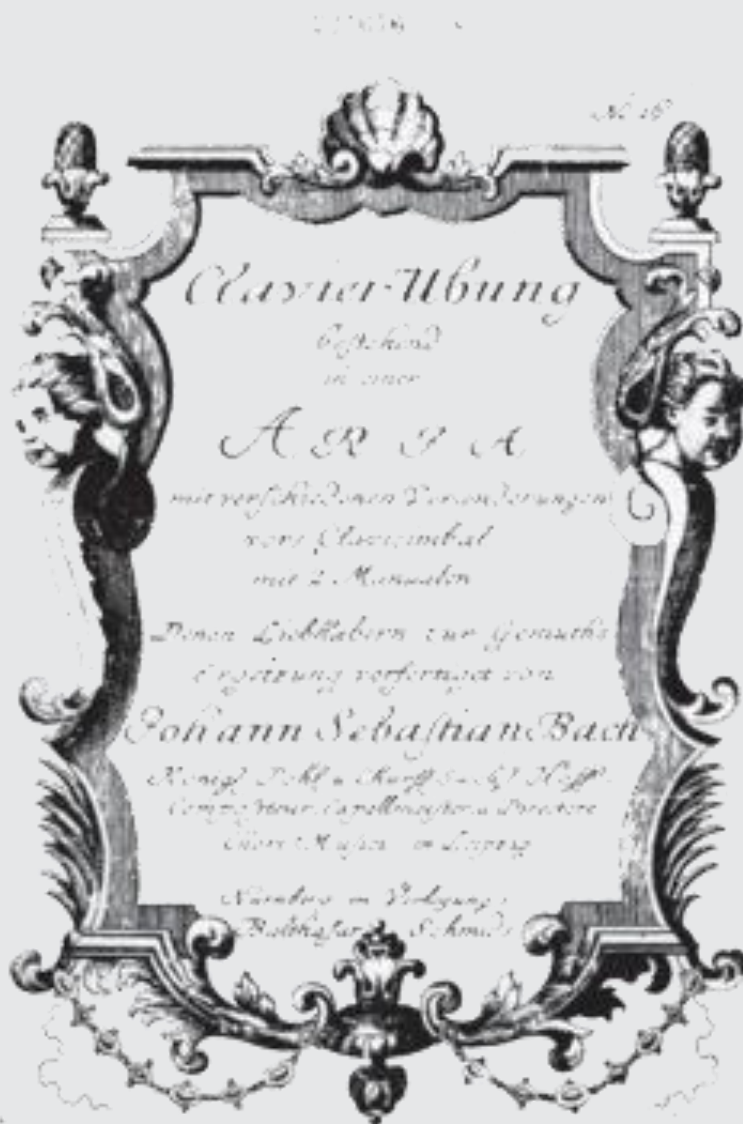 No 16
Clavier-Ubung
bestehend
in einer
ARIA
mit verschiedenen Veraenderungen
vors Clavicimbal
mit 2 Manualen
Denen Liebhabern zur Gemüths
Ergetzung verfertiget von
Johann Sebastian Bach
Königl. Pohl. u. Churfl. Sæchs. Hoff
Compositeur, Capellmeister, u. Directore
Chori Musici in Leipzig
Nürnberg in Verlegung
Balthasar Schmids